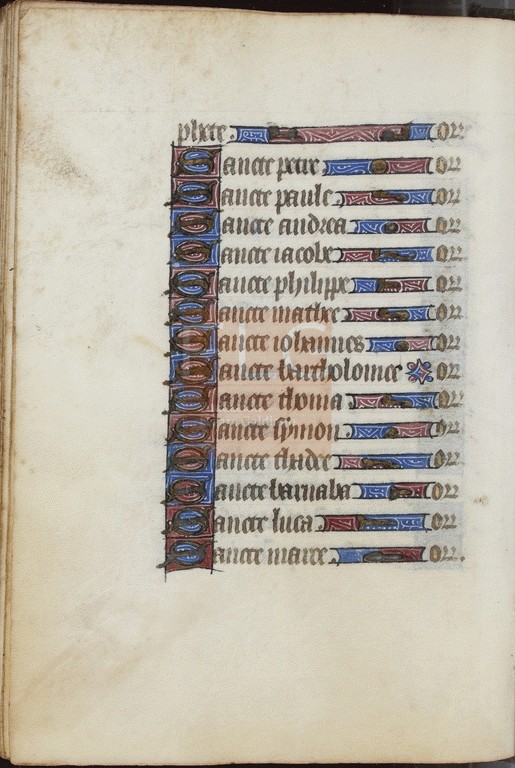 phete. or
Sancte petre or
Sancte paule or
Sancte andrea or
Sancte iacobe or
Sancte philippe or
Sancte mathee or
Sancte iohannes or
Sancte bartholomee or
Sancte thoma or
Sancte symon or
Sancte thadee or
Sancte barnaba or
Sancte luca or
Sancte marce or.